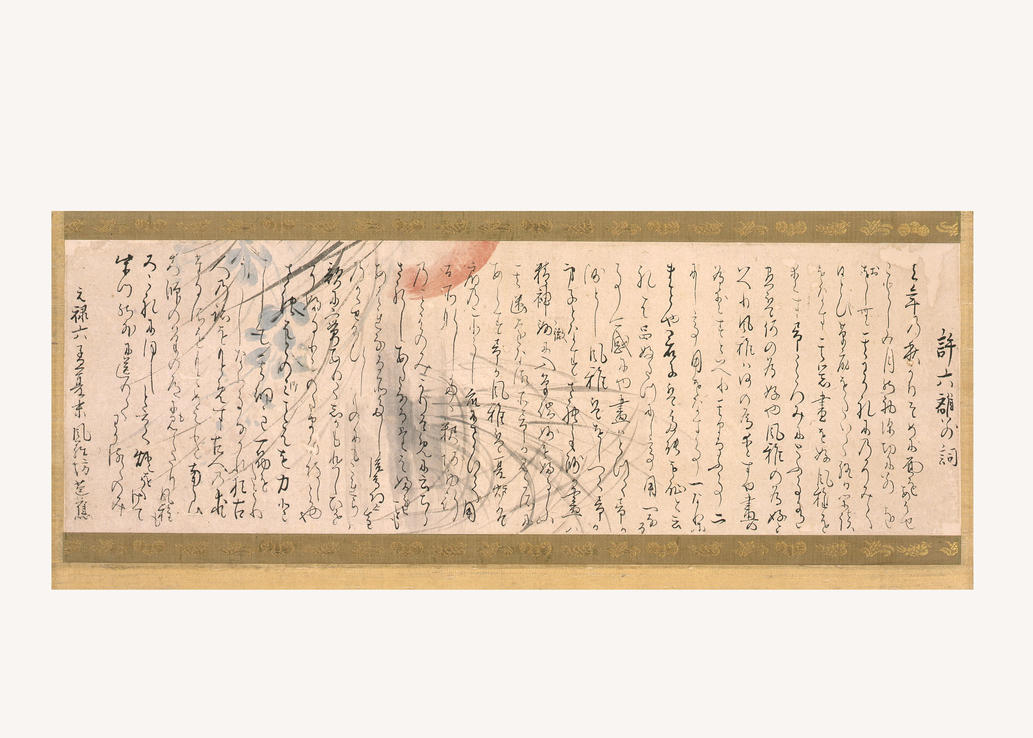 許六離別の詞
去年の秋かりそめに面をあはせ
ことし五月の初深切に別を
おしむ其わかれにのそみて
ひとひ草扉をたゝいて終日閑談
をなす其器画を好風雅を
愛す予こゝろみにとふ事あり
画は何の為好や風雅の為好と
いへり風雅は何の為愛すや画の
為愛すといへり其まなふ事二
にして用をなす事一なり
まことや君子は多能を恥と云
れは品ふたつにして用一なる
事可感にや画はとつて予か
師とし風雅はをしへて予か
弟子となすされとも師か画は
精神徹に入筆端妙をふるふ
其幽遠なる所予か見る所に
あらす予か風雅は夏炉
冬扇のことし衆にさかひて用
る所なしたゝ釈阿西行
のことはのみかりそめに云ちら
されしあたなるたはふれことも
あはれなる所多し後鳥羽上皇の
かゝせ給ひしものにも
歌に実ありてしかも悲しひを
そふるとのたまひ侍りしとかや
されは此ことはを力として
其細き一筋を
たとりうしなふ事なかれ猶古
人の跡をもとめす古人の求
たる所をもとめよと南山
大師の筆の道にも見えたり風雅も
又これに同しと云て燈をかゝけて
柴門の外に送りてわかるゝのみ
元禄六孟夏末風羅坊芭蕉